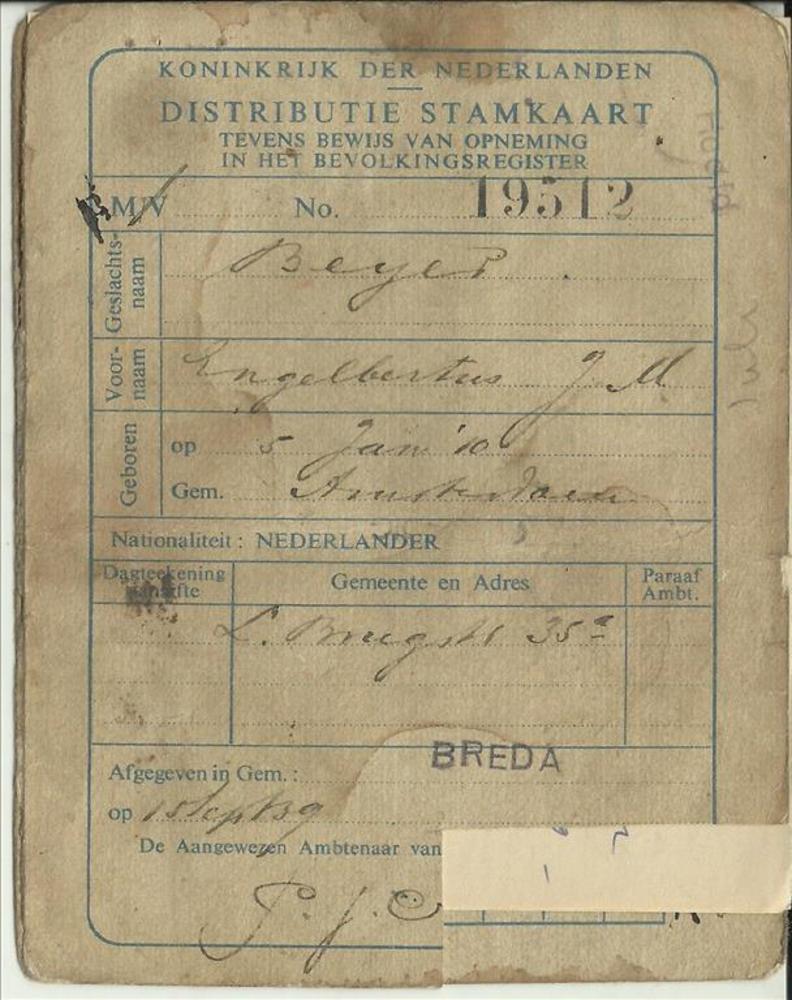 KONINKRIJK DER NEDERLANDEN
DISTRIBUTIE STAMKAART
TEVENS BEWIJS VAN OPNEMING
IN HET BEVOLKINGSREGISTER
M/V No. 19512
Geslachts-
naam
Beyer
Voor-
naam
Engelbertus J. M
Geboren
op 5 Jan '10
Gem. Amsterdam
Nationaliteit : NEDERLANDER
Dagteekening
Gemeente en Adres
Paraaf
Ambt.
L. Brugstr 35a
Afgegeven in Gem. : BREDA
op 1 Sept 39
De Aangewezen Ambtenaar van
P. J. C